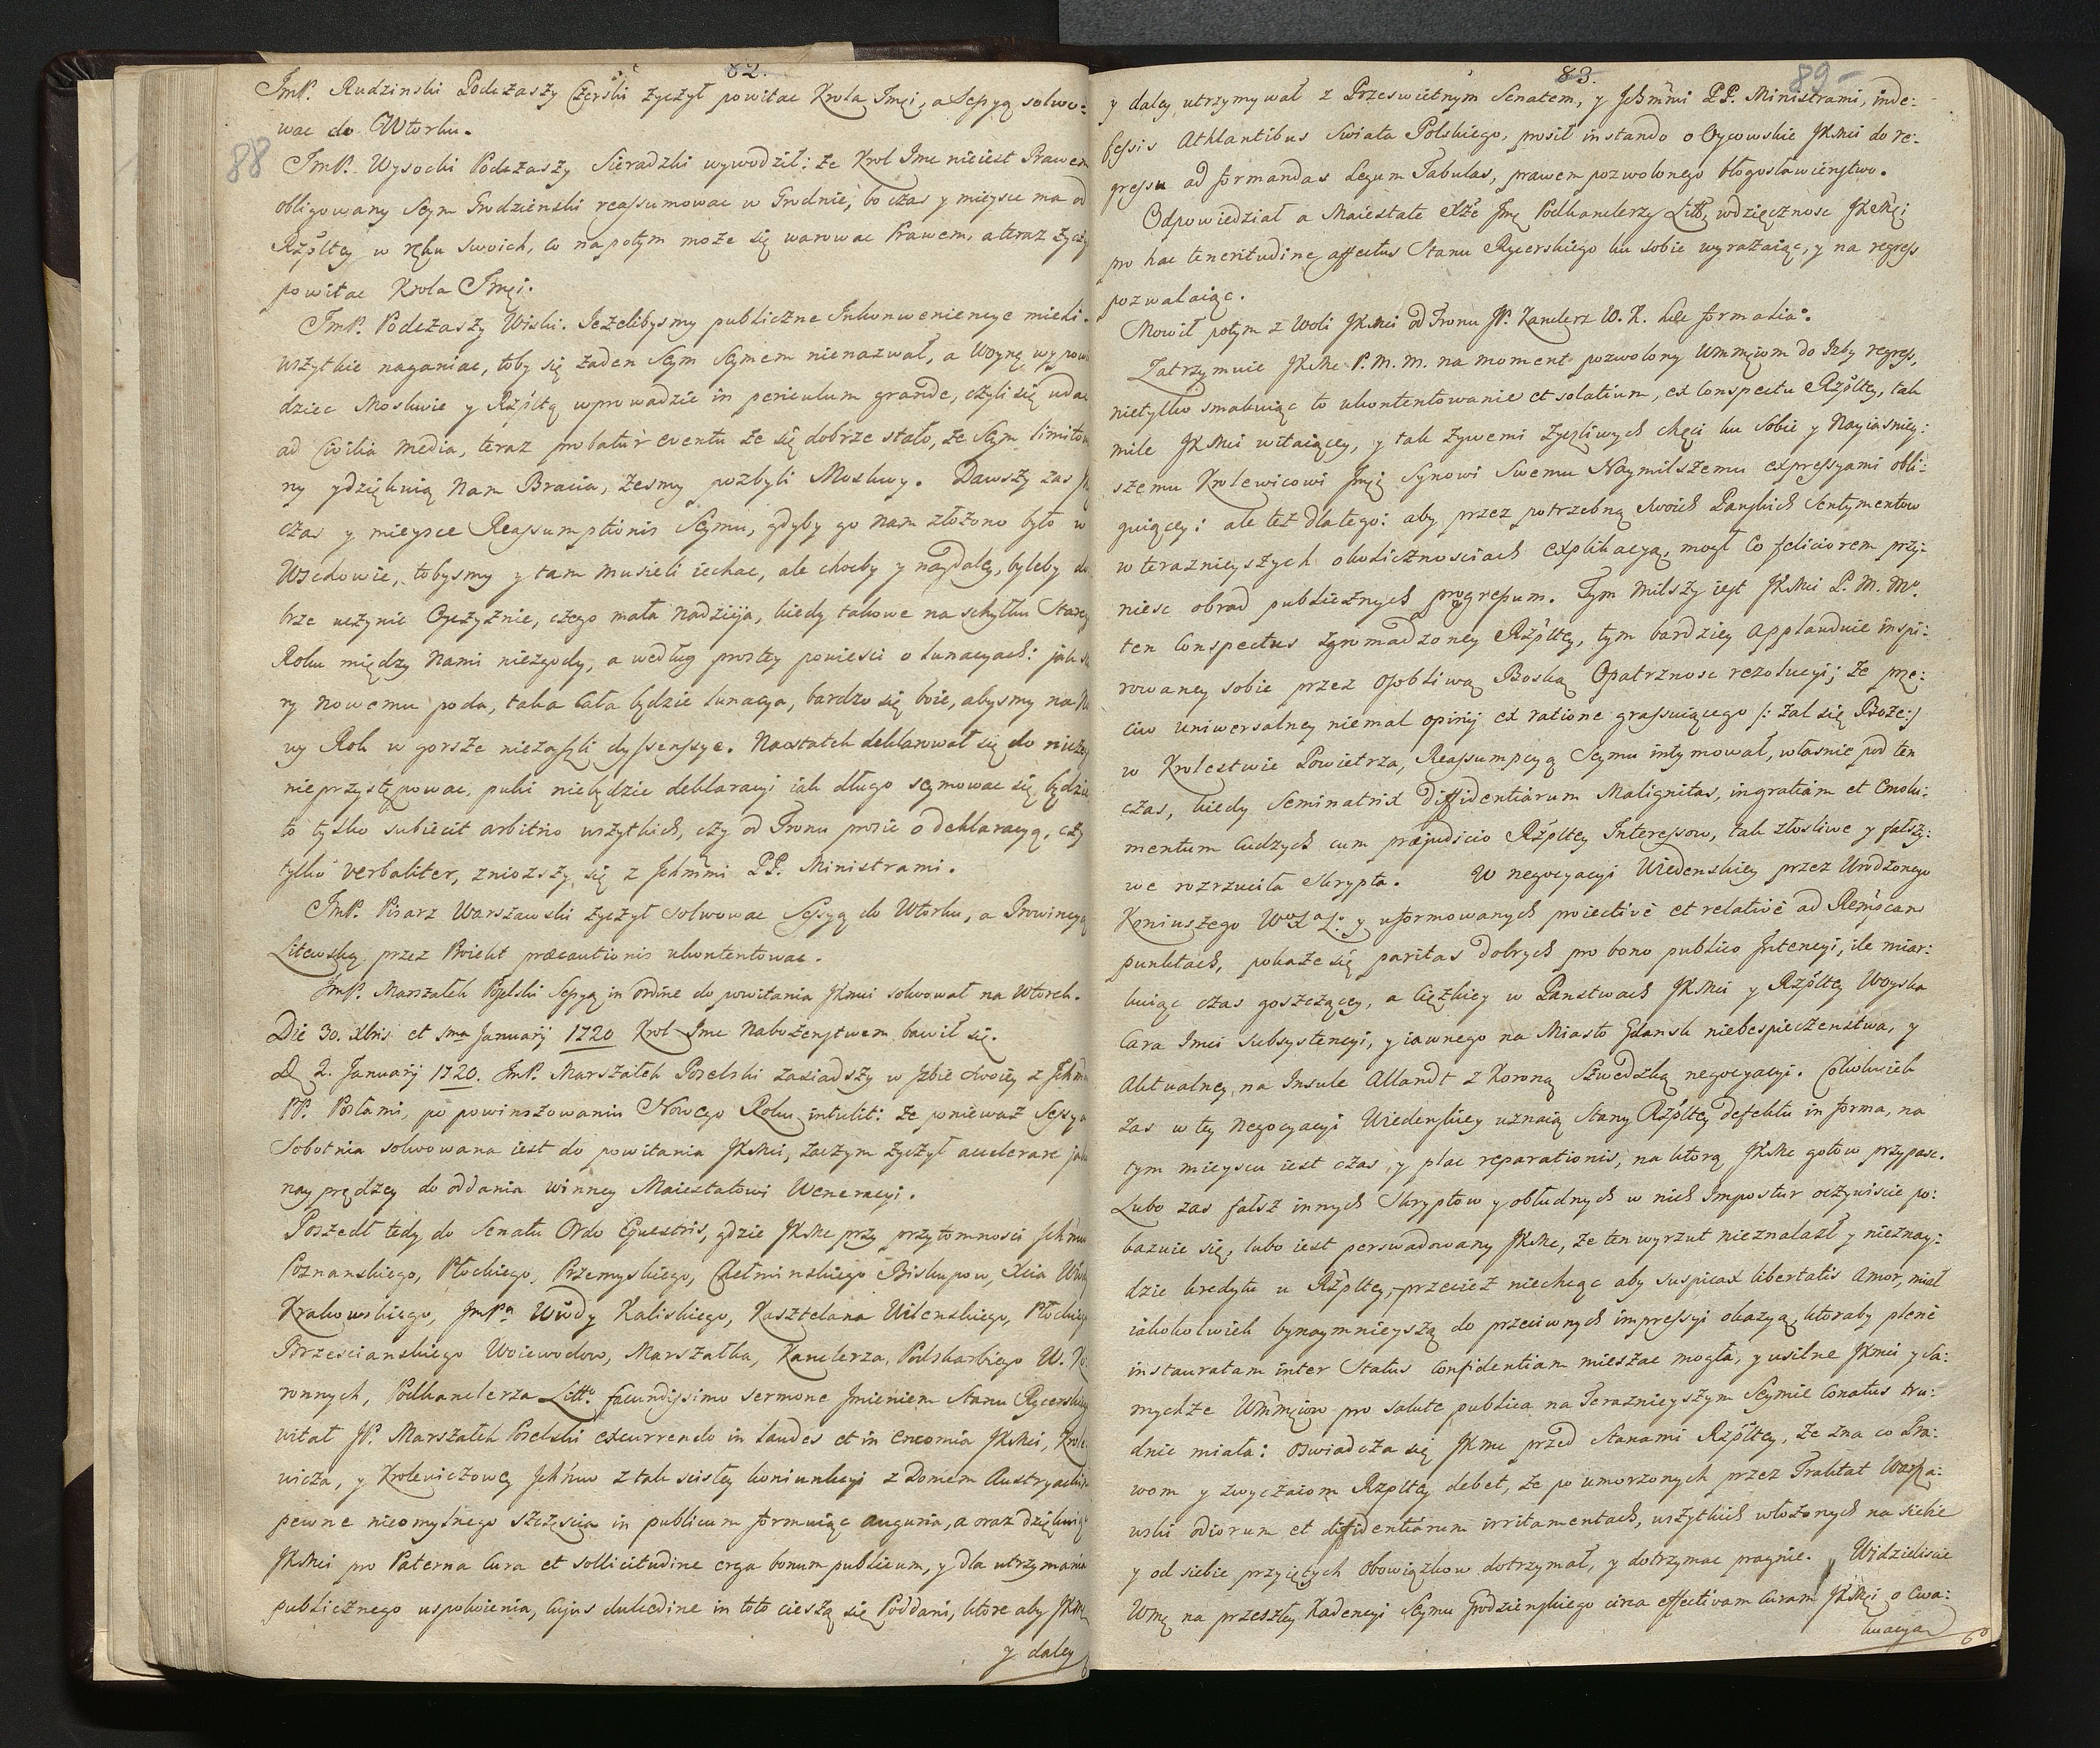 82.
88
JmP. Rudzinski Podczaszy Czerski zyczył powitac Krola Jmci, a Sessyą solwo:
wac do Wtorku.
JmP. Wysocki Podczaszy Sieradzki wywodził: że Krol Jmc nieiest Prawem
obligowany Seym Grodzienski reassumowac w Grodnie, bo czas y mieysce ma od
Rzpltey w ręku swoich, co napotym może się warowac Prawem, a teraz życzy
powitac Krola Jmci.
JmP. Podczaszy Wiski. Jeżelibysmy publiczne Inkonweniencye mieli
wszytkie naganiac, toby się żaden Seym Seymem nienazwał, a Woynę wypowie
dziec Moskwie y Rzpltą wprowadzic in periculum grande, czyli się udac
ad Consilia media, teraz probatur eventu że się dobrze stało, że Seym limitowa
ny y dziękuią Nam Bracia, żesmy pozbyli Moskwy. Dawszy zas
czas y mieysce Reassumptionis Seymu, gdyby go nam złożono było w
Wschowie, tobysmy y tam musieli iechac, ale choćby y naydaley, byleby do
brze uczynic Oyczyznie, czego mała nadzieja, kiedy takowe na schyłku Starego
Roku między Nami niezgody, a według prostey powiesci o lunacyach: jak sta
ry nowemu poda, taka cała będzie lunacya, bardzo się boie, abysmy na No
wy Rok w gorsze niezaszli dyssensye. Naostatek deklarował się do niczego
nieprzystępowac, puki niebędzie deklaracyi iak długo seymowac się będzie
to tylko subiecit arbitrio wszytkich, czy od Tronu prosic o deklaracyą, czy
tylko verbaliter, zniozszy się z Jchmmi PP. Ministrami.
JmP. Pisarz Warszawski życzył solwowac Sessyą do Wtorku, a Prowincyą
Litewską przez Proiekt præcautionis ukontentowac.
JmP. Marszałek Poselski Sessyą in ordine do powitania JKmci solwował na Wtorek.
Die 30. Xbris et 1ma Januarij 1720 Krol Jmc Nabożenstwem bawił się.
D 2. Januarij 1720. JmP. Marszałek Poselski zasiadszy w Jzbie swoiey z Jchmmi
PP. Posłami, po powinszowaniu Nowego Roku intulit: że ponieważ Sessya
Sobotnia solwowana iest do powitania JKMci, zaczym życzył accelerare jako
nayprędzey do oddania winney Maiestatowi Weneracyi.
Poszedł tedy do Senatu Ordo Equestris, gdzie JKMc przy przytomnosci Jchmw
Poznanskiego, Płockiego, Przemyskiego, Chełminskiego Biskupow, Xcia Wwdy
Krakowskiego, JmPa Wwdy Kaliskiego, Kasztelana Wilenskiego, Płockiego
Brzescianskiego Woiewodow, Marszałka, Kanclerza, Podskarbiego W. Ko
ronnych, Podkanclerza Litto facundissimo sermone Jmieniem Stanu Rycerskiego
witał JP. Marszałek Poselski excurrendo in laudes et in encomia JKMci, Krole
wicza, y Krolewiczowey Jchmw z tak scisłey koniunkcyi z Domem Austryackim
pewne nieomylnego szczęscia in publicum formuiąc auguria, a oraz dziękuiąc
JKMci pro Paterna Cura et sollicitudine erga bonum publicum, y dla utrzymania
publicznego uspokoienia, cujus dulcedine in toto cieszą się Poddani, ktore aby JKMc
y daley
83.
89
y daley utrzymywał z Przeswietnym Senatem, y Jchmmi PP. Ministrami, inde:
fessis Athlantibus Swiata Polskiego, prosił instando o Oycowskie JKMci do re:
gressu ad formandas Legum Tabulas, prawem pozwolonego błogosławienstwo.
Odpowiedział a Maiestate Xże Jmc Podkanclerzy Litt, wdzięcznosc JKMci
pro hac teneritudine affectus Stanu Rycerskiego ku sobie wyrażaiąc, y na regress
pozwalaiąc.
Mowił potym z Woli JKMci od Tronu JP. Kanclerz W. K. hæc formalia.
Zatrzymuie JKMc P. M. M. na moment pozwolony Wmmciom do Jzby regress,
nietylko smakuiąc to ukontentowanie et solatium, ex conspectu Rzpltey, tak
mile JKMci witaiącey, y tak żywemi życzliwych chęci ku Sobie y Nayiasniey:
szemu Krolewicowi Jmci Synowi Swemu Naymilszemu expressyami obli:
guiącey: ale też dlatego: aby przez potrzebną swoich Panskich Sentymentow
w terazniejszych okolicznosciach explikacyą, mogł co feliciorem przy:
niesc obrad publicznych progressum. Tym milszy iest JKMci P. M. Mu.
ten Conspectus zgromadzoney Rzpltey, tym bardziey applauduie inspi:
rowaney sobie przez osobliwą Boską Opatrznosc rezolucyi; że prze:
ciw uniwersalney niemal opinij ex ratione grassuiącego /: żal się Boże :/
w Krolestwie Powietrza, Reassumpcyą Seymu intymował, własnie pod ten
czas, kiedy Seminatrix diffidentiarum Malignitas, in gratiam et Emolu:
mentum cudzych cum præjudicio Rzpltey Interessow, tak złosliwe y fałszy:
we rozrzuciła Skrypta. W negocyacyi Wiedenskiey przez Urodzonego
Koniuszego y uformowanych proiective et relative ad Rempcam
punktach, pokaże się paritas dobrych pro bono publico Jntencyi, ile miar:
kuiąc czas goszczącey, a cięzkiey w Panstwach JKMci y Rzpltey Woyska
Cara Jmci Subsystencyi, y iawnego na Miasto Gdansk niebespieczenstwa, y
Aktualney, na Insule Allandt z Koroną Szwedzką negocyacyi. Cokolwiek
zas w tey Negocyacyi Wiedenskiey uznaią Stany Rzpltey defektu in forma, na
tym mieyscu iest czas, y plac reparationis, na ktorą JKMc gotow przypasc.
Lubo zas fałsz innych Skryptow y obłudnych w nich Impostur oczywiscie po:
kazuie się, lubo iest perswadowany JKMc, że ten wyrzut nieznalazł y nieznay:
dzie kredytu u Rzpltey, przecież niechcąc aby suspicax libertatis Amor, miał
iakokolwiek bynaymnieyszą do przeciwnych impressyi okazyą, ktoraby plene
instauratam inter Status Confidentiam mieszac mogła, y usilne JKmci y Sa:
mychże Wmmciow pro Salute publica na Teraznieyszym Seymie Conatus tru:
dnic miała: oswiadcza się JKmc przed Stanami Rzpltey, że zna co Pra:
wom y zwyczaiom Rzpltey debet, że po umorzonych przez Traktat Warsza:
wski odiorum et diffidentiarum irritamentach, wszytkich włożonych na siebie
y od siebie przyiętych Obowiązkow dotrzymał, y dotrzymac pragnie. Widzieliscie
Wmc na przeszłey Kadencyi Seymu Grodzienskiego circa effectivam curam JKMci o Ewa:
kuacya